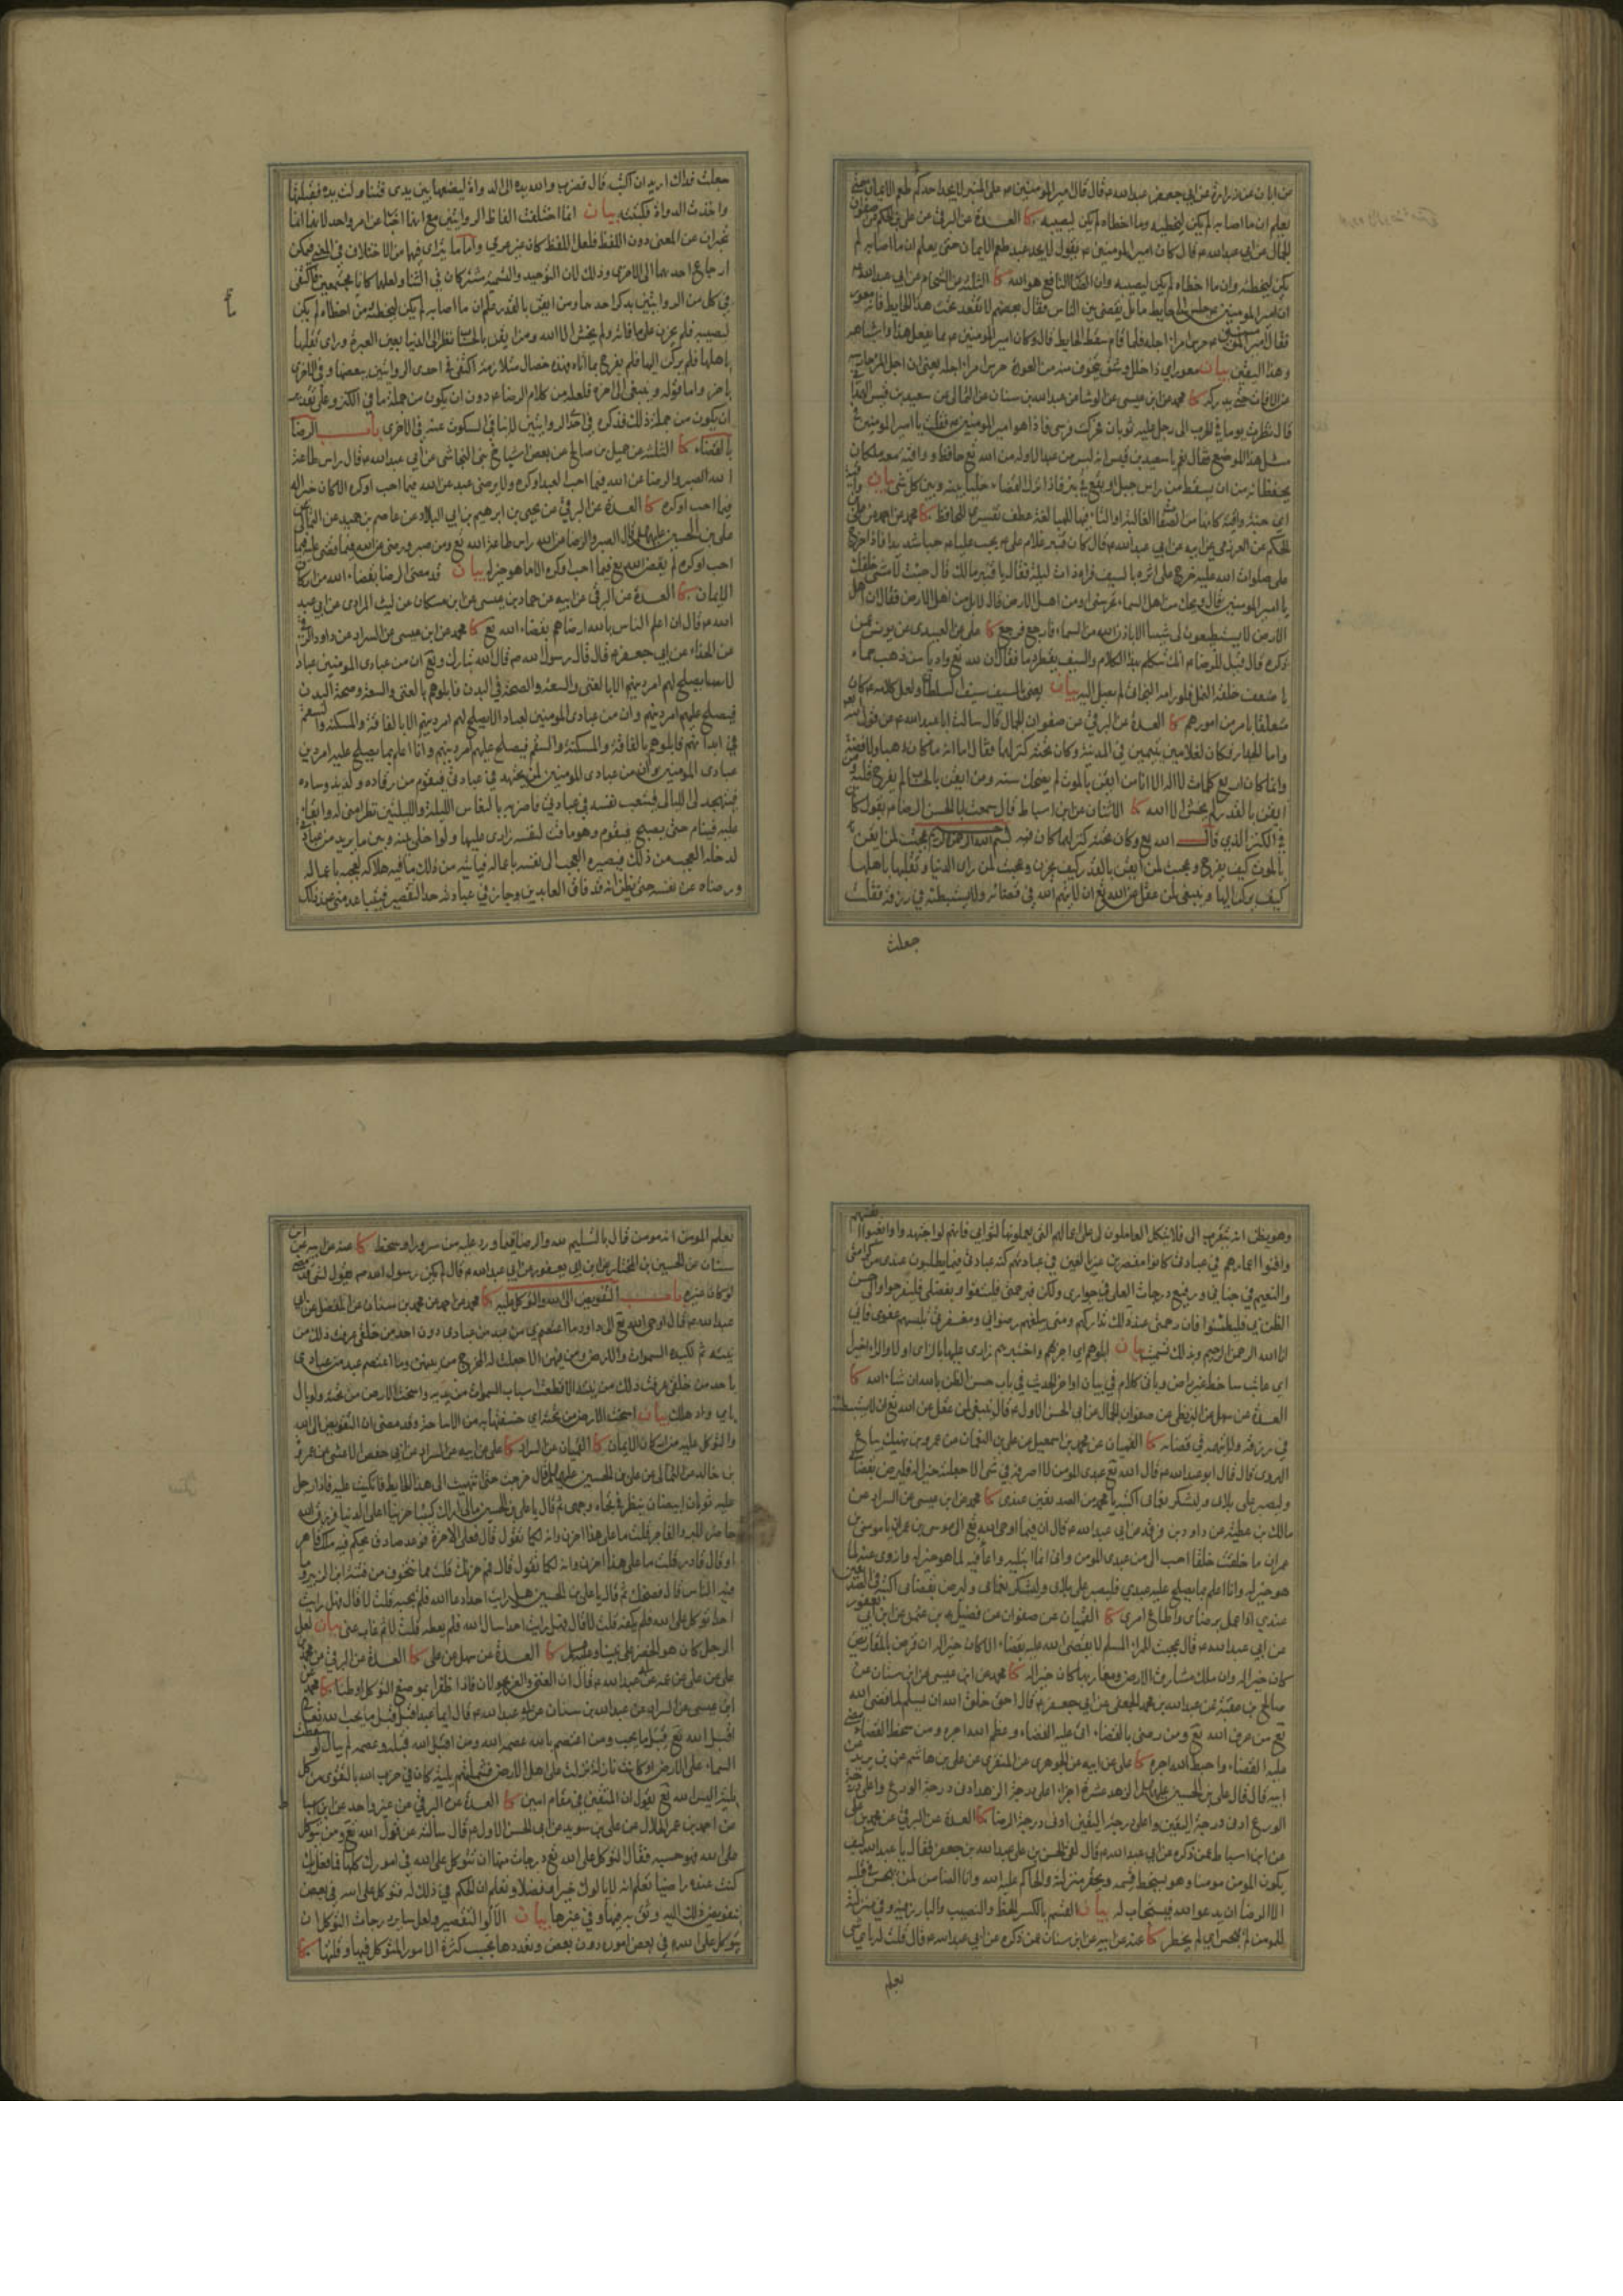 من ابان عن زرارة عن ابي جعفر عبد الله ع قال قال امير المؤمنين ع على المنبر لا يجد احدكم طعم الايمان حتى
يعلم ان ما اصابه لم يكن ليخطيه وما اخطاه لم يكن ليصيبه كا العدة عن البرقي عن علي بن الحكم عن صفوان
الجمال عن ابي عبد الله ع قال كان امير المؤمنين ع يقول لا يجد عبد طعم الايمان حتى يعلم ان ما اصابه لم
يكن ليخطئه وان ما اخطاه لم يكن ليصيبه وان الضار النافع هو الله كا الثلثة عن الشحام عن ابي عبد الله ع
ان امير المؤمنين ع جلس الى حايط مائل يقضي بين الناس فقال بعضهم لا تقعد تحت هذا الحايط فانه معور
فقال امير المؤمنين ع حرس امرا اجله فلما قام سقط الحايط قال وكان امير المؤمنين ع مما يفعل هذا واشباهه
وهذا اليقين بيان معور اي ذا خلل وشق يتخوف منه من العورة حرس امرا اجله يعني ان اجل المرء حارسه
من الافات حتى يدركه كا محمد عن ابن عيسى عن الوشا عن عبد الله بن سنان عن الثمالي عن سعيد بن قيس الهمداني
قال نظرت يوما في الحرب الى رجل عليه ثوبان فحركت فرسي فاذا هو امير المؤمنين ع فقلت يا امير المؤمنين في
مثل هذا الموضع فقال نعم يا سعيد بن قيس انه ليس من عبد الا وله من الله تع حافظ وواقية معه ملكان
يحفظانه من ان يسقط من راس جبل او يقع في بئر فاذا نزل القضاء خليا بينه وبين كل شي بيان واقية
اي جنة واقية كانها من الصفات الغالبة والتاء فيها للمبالغة عطف تفسيري للحافظ كا محمد عن احمد عن علي بن
الحكم عن العرزمي عن ابيه عن ابي عبد الله ع قال كان قنبر غلام علي ع يحب عليا ع حبا شديدا فاذا خرج
علي صلوات الله عليه خرج على اثره بالسيف فراه ذات ليلة فقال يا قنبر مالك قال جئت لامشي خلفك
يا امير المؤمنين قال ويحك من اهل السماء تحرسني او من اهل الارض قال لا بل من اهل الارض فقال ان اهل
الارض لا يستطيعون لي شيئا الا باذن الله من السماء فارجع فرجع كا علي عن العبيدي عن يونس عمن
ذكره قال قيل للرضا ع انك تتكلم بهذا الكلام والسيف يقطر دما فقال ان لله تع واديا من ذهب حماه
باضعف خلقه النمل فلو رامه البخاتي لم تصل اليه بيان يعني بالسيف سيف السلطان ولعل كلامه ع كان
متعلقا بامر من امورهم كا العدة عن البرقي عن صفوان الجمال قال سالت ابا عبد الله ع عن قول الله
واما الجدار فكان لغلامين يتيمين في المدينة وكان تحته كنز لهما فقال اما انه ما كان ذهبا ولا فضة
وانما كان اربع كلمات لا اله الا انا من ايقن بالموت لم يضحك سنه ومن ايقن بالحساب لم يفرح قلبه ومن
ايقن بالقدر لم يخش الا الله كا الاثنان عن ابن اسباط قال سمعت ابا الحسن الرضا ع يقول كان
في الكنز الذي قال الله تع وكان تحته كنز لهما كان فيه بسم الله الرحمن الرحيم عجبت لمن ايقن
بالموت كيف يفرح وعجبت لمن ايقن بالقدر كيف يحزن وعجبت لمن راى الدنيا وتقلبها باهلها
كيف يركن اليها وينبغي لمن عقل عن الله تع ان لا يتهم الله في قضائه ولا يستبطئه في رزقه فقلت
جعلت
جعلت فداك اريد ان اكتبه قال فضرب والله يده الى الدواة ليضعها بين يدي فتناولت يده فقبلتها
واخذت الدواة فكتبته بيان انما اختلفت الفاظ الروايتين مع انها اخبار عن امر واحد لانها انما
تخبران عن المعنى دون اللفظ فلعل اللفظ كان غير عربي واما ما يتراى فيها من الاختلاف في المعنى فيمكن
ارجاع احدهما الى الاخرى وذلك لان التوحيد والتسمية مشتركان في الثناء ولعلها كانا مجتمعين فاكتفى
في كل من الروايتين بذكر احدهما ومن ايقن بالقدر علم ان ما اصابه لم يكن ليخطئه وما اخطاه لم يكن
ليصيبه فلم يحزن على ما فاته ولم يخش الا الله ومن ايقن بالحساب نظر الى الدنيا بعين العبرة وراى تقلبها
باهلها فلم يركن اليها فلم يفرح بما اتاه فهذه خصال متلازمة اكتفى في احدى الروايتين ببعضها وفي الاخرى
باخر واما قوله وينبغي الى اخره فلعله من كلام الرضا ع دون ان يكون من جملة ما في الكنز وعلى تقدير
ان يكون من جملة ذلك فذكره في احدى الروايتين لا ينافي السكوت عنه في الاخرى باب الرضا
بالقضاء كا الثلثة عن جميل بن صالح عن بعض اشياخ بني النجاشي عن ابي عبد الله ع قال راس طاعة
الله الصبر والرضا عن الله فيما احب العبد او كره ولا يرضى عبد عن الله فيما احب او كره الا كان خيرا له
فيما احب او كره كا العدة عن البرقي عن يحيى بن ابرهيم بن ابي البلاد عن عاصم بن حميد عن الثمالي عن
علي بن الحسين عليهما السلم قال الصبر والرضا عن الله راس طاعة الله تع ومن صبر ورضي عن الله فيما قضى عليه فيما
احب او كره لم يقض الله تع فيما احب او كره الا ما هو خير له بيان قد مضى الرضا بقضاء الله من اركان
الايمان كا العدة عن البرقي عن ابيه عن حماد بن عيسى عن ابن مسكان عن ليث المرادي عن ابي عبد
الله ع قال ان اعلم الناس بالله ارضاهم بقضاء الله تع كا محمد عن ابن عيسى عن السراد عن داود الرقي
عن الحذاء عن ابي جعفر ع قال قال رسول الله ص قال الله تبارك وتع ان من عبادي المؤمنين عبادا
لا يصلح لهم امر دينهم الا بالغنى والسعة والصحة في البدن فابلوهم بالغنى والسعة وصحة البدن
فيصلح عليهم امر دينهم وان من عبادي المؤمنين لعبادا لا يصلح لهم امر دينهم الا بالفاقة والمسكنة والسقم
في ابدانهم فابلوهم بالفاقة والمسكنة والسقم فيصلح عليهم امر دينهم وانا اعلم بما يصلح عليه امر دين
عبادي المؤمنين وان من عبادي المؤمنين لمن يجتهد في عبادتي فيقوم من رقاده ولذيذ وساده
فيتهجد لي الليالي فيتعب نفسه في عبادتي فاضربه بالنعاس الليلة والليلتين نظرا مني له وابقاء
عليه فينام حتى يصبح فيقوم وهو ماقت لنفسه زارئ عليها ولو اخلي بينه وبين ما يريد من عبادتي
لدخله العجب من ذلك فيصيره العجب الى الفتنة باعماله فياتيه من ذلك ما فيه هلاكه لعجبه باعماله
ورضاه عن نفسه حتى يظن انه قد فاق العابدين وجاز في عبادته حد التقصير فيتباعد مني عند ذلك
وهو يظن انه يتقرب الي فلا يتكل العاملون لي على اعمالهم التي يعملونها لثوابي فانهم لو اجتهدوا واتعبوا انفسهم
وافنوا اعمارهم في عبادتي كانوا مقصرين غير بالغين في عبادتهم كنه عبادتي فيما يطلبون عندي من كرامتي
والنعيم في جناتي ورفيع درجات العلى في جواري ولكن فبرحمتي فليثقوا وبفضلي فليفرحوا والى حسن
الظن بي فليطمئنوا فان رحمتي عند ذلك تداركهم ومني يبلغهم رضواني ومغفرتي تلبسهم عفوي فاني
انا الله الرحمن الرحيم وبذلك تسميت بيان ابلوهم اي اجربهم واختبرهم زاري عليها بالزاي اولا والراء اخيرا
اي عاتب ساخط غير راض وياتي كلام في بيان اواخر الحديث في باب حسن الظن بالله ان شاء الله كا
العدة عن سهل عن البزنطي عن صفوان الجمال عن ابي الحسن الاول ع قال ينبغي لمن عقل عن الله تع ان لا يستبطئه
في رزقه ولا يتهمه في قضائه كا القميان عن محمد بن اسمعيل عن علي بن النعمان عن عمرو بن نهيك بياع
الهروي قال قال ابو عبد الله ع قال الله تع عبدي المؤمن لا اصرفه في شي الا جعلته خيرا له فليرض بقضائي
وليصبر على بلائي وليشكر نعمائي اكتبه يا محمد من الصديقين عندي كا محمد عن ابن عيسى عن السراد عن
مالك بن عطية عن داود بن فرقد عن ابي عبد الله ع قال ان فيما اوحى الله تع الى موسى بن عمران يا موسى بن
عمران ما خلقت خلقا احب الي من عبدي المؤمن واني انما ابتليه واعافيه لما هو خير له وازوي عنه لما
هو خير له وانا اعلم بما يصلح عليه عبدي فليصبر على بلائي وليشكر نعمائي وليرض بقضائي اكتبه في الصديقين
عندي اذا عمل برضائي واطاع امري كا القميان عن صفوان عن فضيل بن عثمن عن ابن ابي يعفور
عن ابي عبد الله ع قال عجبت للمرء المسلم لا يقضي الله عليه بقضاء الا كان خيرا له ان قرض بالمقاريض
كان خيرا له وان ملك مشارق الارض ومغاربها كان خيرا له كا محمد عن ابن عيسى عن ابن سنان عن
صالح بن عقبة عن عبد الله بن محمد الجعفي عن ابي جعفر ع قال احق خلق الله ان يسلم لما قضى الله
تع من عرف الله تع ومن رضي بالقضاء اتى عليه القضاء وعظم الله اجره ومن سخط القضاء مضى
عليه القضاء واحبط الله اجره كا علي عن ابيه عن الجوهري عن المنقري عن علي بن هاشم بن بريد عن
ابيه قال قال علي بن الحسين عليهما السلم الزهد عشرة اجزاء اعلى درجة الزهد ادنى درجة الورع واعلى درجة
الورع ادنى درجة اليقين واعلى درجة اليقين ادنى درجة الرضا كا العدة عن البرقي عن محمد بن علي
عن ابن اسباط عمن ذكره عن ابي عبد الله ع قال لقي الحسن بن علي عبد الله بن جعفر فقال يا عبد الله كيف
يكون المؤمن مؤمنا وهو يسخط قسمه ويحقر منزلته والحاكم عليه الله وانا الضامن لمن لم يهجس في قلبه
الا الرضا ان يدعو الله فيستجاب له بيان القسم بالكسر الحظ والنصيب والبارز في منزلته
للمؤمن لم يهجس اي لم يخطر كا عنه عن ابيه عن ابن سنان عمن ذكره عن ابي عبد الله ع قال قلت له باي شي
يعلم
يعلم المؤمن انه مؤمن قال بالتسليم لله والرضا فيما ورد عليه من سرور او سخط كا عنه عن ابيه عن ابن
سنان عن الحسين بن المختار عن ابن ابي يعفور عن ابي عبد الله ع قال لم يكن رسول الله ص يقول لشي قد مضى
لو كان غيره باب التفويض الى الله والتوكل عليه كا محمد عن احمد عن محمد بن سنان عن المفضل عن ابي
عبد الله ع قال اوحى الله تع الى داود ما اعتصم بي عبد من عبادي دون احد من خلقي عرفت ذلك من
نيته ثم تكيده السموات والارض ومن فيهن الا جعلت له المخرج من بينهن وما اعتصم عبد من عبادي
باحد من خلقي عرفت ذلك من نيته الا قطعت اسباب السموات من يديه واسخت الارض من تحته ولم ابال
باي واد هلك بيان اسخت الارض من تحته اي خسفتها به من الاساخة وقد مضى ان التفويض الى الله
والتوكل عليه من اركان الايمان كا القميان عن السراد كا علي عن ابيه عن السراد عن ابي حفص الاعشى عن عمرو
بن خالد عن الثمالي عن علي بن الحسين عليهما السلم قال خرجت حتى انتهيت الى هذا الحايط فاتكيت عليه فاذا رجل
عليه ثوبان ابيضان ينظر في تجاه وجهي ثم قال يا علي بن الحسين مالي اراك كئيبا حزينا اعلى الدنيا فرزق الله
حاضر للبر والفاجر قلت ما على هذا احزن وانه لكما تقول قال فعلى الاخرة فوعد صادق يحكم فيه ملك قاهر
او قال قادر قلت ما على هذا احزن وانه لكما تقول قال فمم حزنك قلت مما نتخوف من فتنة ابن الزبير وما
فيه الناس قال فضحك ثم قال يا علي بن الحسين هل رايت احدا دعا الله فلم يجبه قلت لا قال فهل رايت
احدا توكل على الله فلم يكفه قلت لا قال فهل رايت احدا سال الله فلم يعطه قلت لا ثم غاب عني بيان لعل
الرجل كان هو الخضر على نبينا وعليه السلم كا العدة عن سهل عن علي كا العدة عن البرقي عن محمد بن
علي عن علي عن عمه عن ابي عبد الله ع قال ان الغنى والعز يجولان فاذا ظفرا بموضع التوكل اوطنا كا محمد عن
ابن عيسى عن السراد عن عبد الله بن سنان عن ابي عبد الله ع قال ايما عبد اقبل قبل ما يحب الله تع
اقبل الله تع قبل ما يحب ومن اعتصم بالله عصمه الله ومن اقبل الله قبله وعصمه لم يبال لو سقطت
السماء على الارض او كانت نازلة نزلت على اهل الارض فشملتهم بلية كان في حزب الله بالتقوى من كل
بلية اليس الله تع يقول ان المتقين في مقام امين كا العدة عن البرقي عن غير واحد عن ابن اسباط
عن احمد بن عمر الحلال عن علي بن سويد عن ابي الحسن الاول ع قال سالته عن قول الله تع ومن يتوكل
على الله فهو حسبه فقال التوكل على الله تع درجات منها ان تتوكل على الله في امورك كلها فما فعل بك
كنت عنه راضيا تعلم انه لا يالوك خيرا وفضلا وتعلم ان الحكم في ذلك له فتوكل على الله
بتفويض ذلك اليه وثق به فيها وفي غيرها بيان الالو التقصير ولعل ساير درجات التوكل ان
يتوكل على الله في بعض اموره دون بعض وتعددها بحسب كثرة الامور المتوكل فيها وقلتها كا